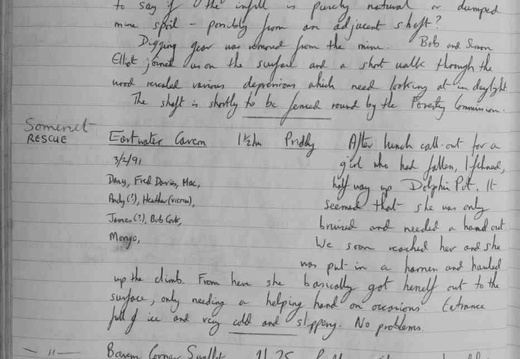 to say if the infill is purely natural or dumped
mine spoil - possibly from an adjacent shaft?
Digging gear was removed from the mine. Bob and Simon
Elliot joined us on the surface and a short walk through the
wood revealed various depressions which need looking at in daylight
The shaft is shortly to be fenced round by the Forestry Commission.
Somerset
RESCUE
Eastwater Cavern 1½ hrs Priddy After lunch call-out for a
3/2/91 girl who had fallen, 
Dany, Fred Davies, Mac, half way up Dolphin Pot. It
Andy (?), Heather (victim), seemed that she was only
James (?), Bob Cork, bruised and needed a hand out
Mongo, We soon reached her and she
was put in a harness and hauled
up the climb. From here she basically got herself out to the
surface, only needing a helping hand on occasions. Entrance
full of ice and very cold and slippery. No problems.
— " — Corner Swallet